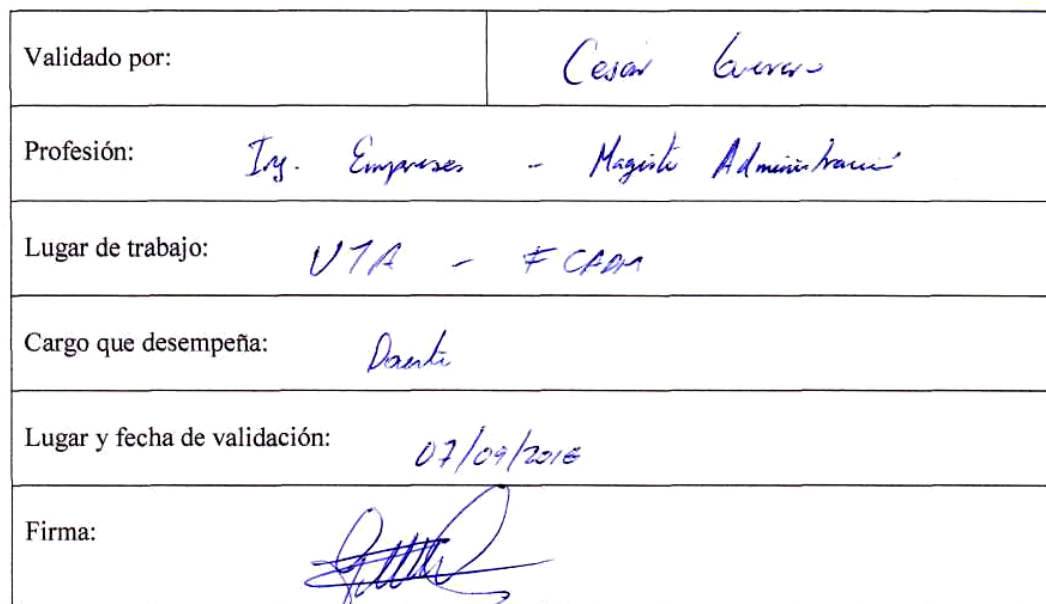 Validado por: Cesar Guerrero
Profesión: Ing. Empresas - Magister Administración
Lugar de trabajo: UTA - FCADM
Cargo que desempeña: Docente
Lugar y fecha de validación: 07/09/2016
Firma: